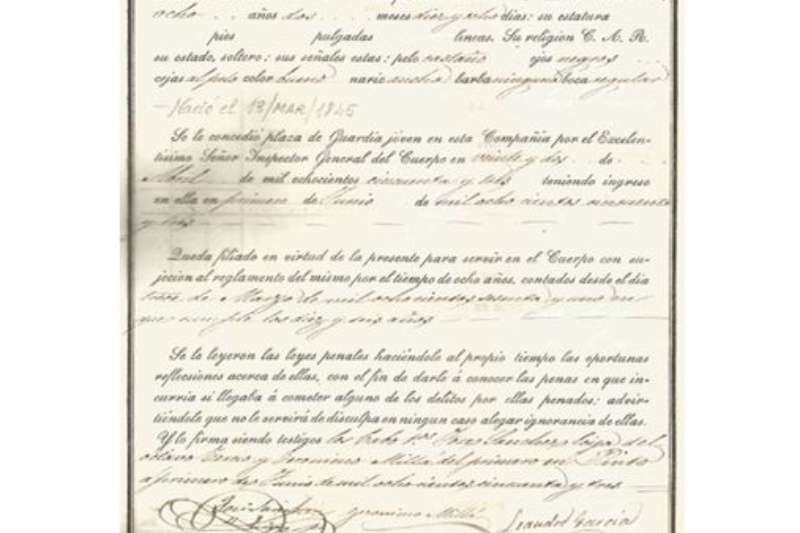 ocho años dos meses diez y ocho dias: su estatura
pies pulgadas lineas. Su religion C. A. R.
su estado, soltero: sus señales estas: pelo castaño ojos negros
cejas al pelo color bueno nariz ancha barba ninguna boca regular
- Nació el 13/MAR/1845
Se le concedió plaza de Guardia jóven en esta Compañia por el Excelen-
tísimo Señor Inspector General del Cuerpo en veinte y dos de
Abril de mil ochocientos cincuenta y tres teniendo ingreso
en ella en primero de Junio de mil ocho cientos cincuenta
y tres
Queda filiado en virtud de la presente para servir en el Cuerpo con su-
jecion al reglamento del mismo por el tiempo de ocho años, contados desde el dia
trece de Marzo de mil ocho cientos sesenta y uno en
que cumple los diez y seis años
Se le leyeron las leyes penales haciéndole al propio tiempo las oportunas
reflecsiones acerca de ellas, con el fin de darle á conocer las penas en que in-
curria si llegaba á cometer alguno de los delitos por ellas penados: advir-
tiéndole que no le servirá de disculpa en ningun caso alegar ignorancia de ellas.
Y lo firma siendo testigos los Cabo José Sanchez del
octavo Tercio y Geronimo Millá del primero en Pinto
a primero de Junio de mil ocho cientos cincuenta y tres
José Sanchez Geronimo Millá Leandro Garcia